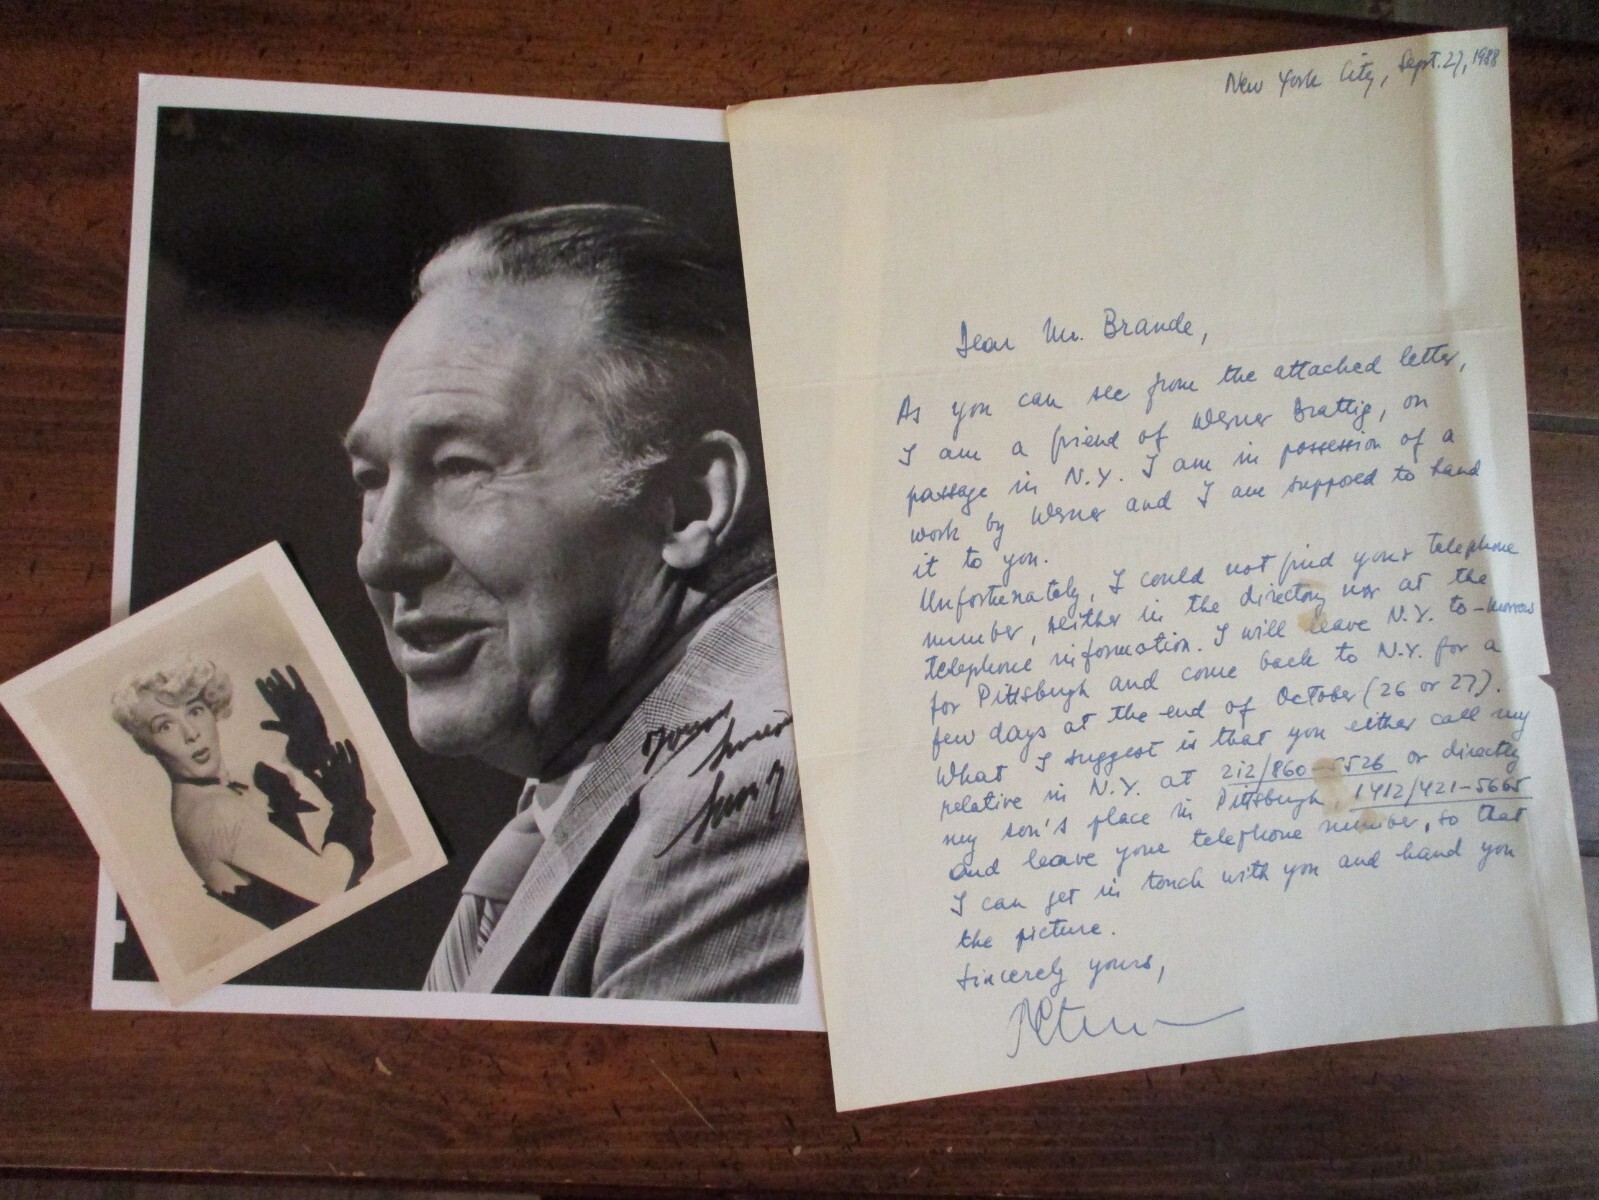 Yours
New York City, Sept. 27, 1988
Dear Mr. Brande,
As you can see from the attached letter,
I am a friend of Werner Brattig, on
passage in N.Y. I am in possession of a
work by Werner and I am supposed to hand
it to you.
Unfortunately, I could not find your telephone
number, neither in the directory nor at the
telephone information. I will leave N.Y. to-morrow
for Pittsburgh and come back to N.Y. for a
few days at the end of October (26 or 27).
What I suggest is that you either call my
relative in N.Y. at 212/860-5526 or directly
my son's place in Pittsburgh, 1412/421-5665
and leave your telephone number, so that
I can get in touch with you and hand you
the picture.
Sincerely yours,